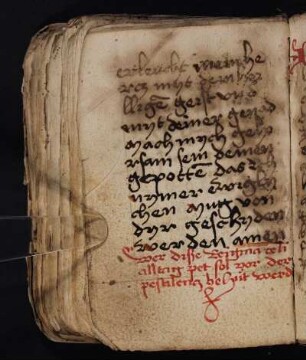 erleucht mein he
rcz myt dem hey
lligen geist vnd
myt deiner genad
mach mych geho
rsam sein deinen
gepotten das ich
nymer ewigkli
chen mug von
dyr geschyden
werden amen
wer disse
alltag pet sol vor der
pestilentz behüt werd